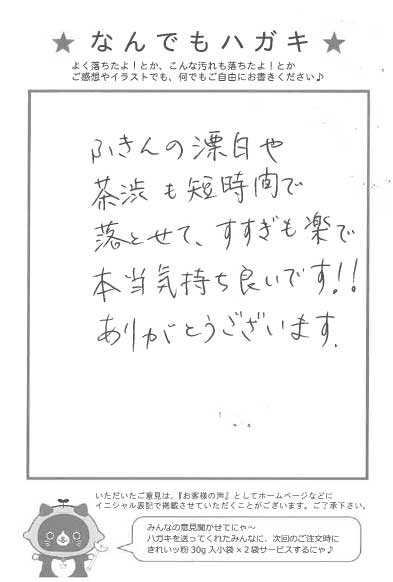 ★ なんでもハガキ ★
よく落ちたよ！とか、こんな汚れも落ちたよ！とか
ご感想やイラストでも、何でもご自由にお書きください♪
ふきんの漂白や
茶渋も短時間で
落とせて、すすぎも楽で
本当気持ち良いです!!
ありがとうございます.
いただいたご意見は、『お客様の声』としてホームページなどに
イニシャル表記で掲載させていただくことがございます。ご了承下さい。
みんなの意見聞かせてにゃ～
ハガキを送ってくれたみんなに、次回のご注文時に
きれいッ粉30g入小袋×2袋サービスするにゃ♪